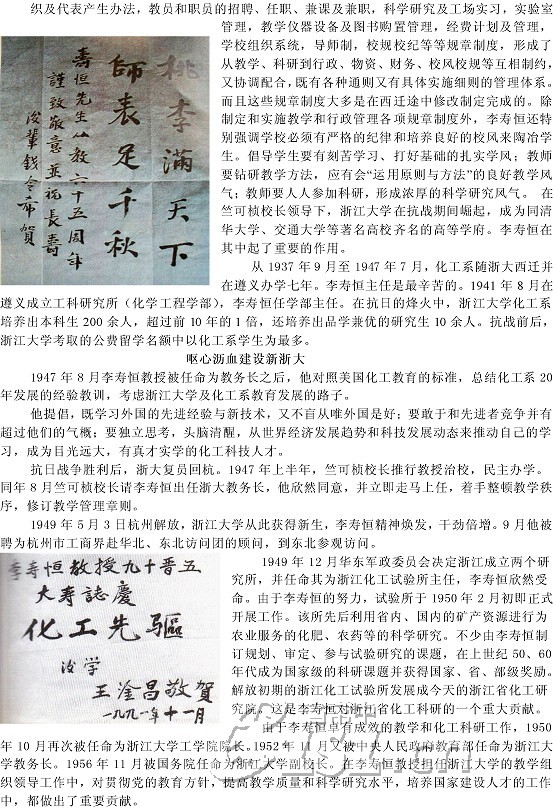 织及代表产生办法，教员和职员的招聘、任职、兼课及兼职，科学研究及工场实习，实验室
管理，教学仪器设备及图书购置管理，经费计划及管理，
学校组织系统，导师制，校规校纪等等规章制度，形成了
从教学、科研到行政、物资、财务、校风校规等互相制约，
又协调配合，既有各种通则又有具体实施细则的管理体系。
而且这些规章制度大多是在西迁途中修改制定完成的。除
制定和实施教学和行政管理各项规章制度外，李寿恒还特
别强调学校必须有严格的纪律和培养良好的校风来陶冶学
生。倡导学生要有刻苦学习、打好基础的扎实学风；教师
要钻研教学方法，应有会“运用原则与方法”的良好教学风
气；教师要人人参加科研，形成浓厚的科学研究风气。 在
竺可桢校长领导下，浙江大学在抗战期间崛起，成为同清
华大学、交通大学等著名高校齐名的高等学府。李寿恒在
其中起了重要的作用。
桃李满天下
师表足千秋
寿恒先生从教六十五周年
谨致敬意并祝长寿
后辈钱令希贺
从 1937 年 9 月至 1947 年 7 月，化工系随浙大西迁并
在遵义办学七年。李寿恒主任是最辛苦的。1941 年 8 月在
遵义成立工科研究所（化学工程学部），李寿恒任学部主任。在抗日的烽火中，浙江大学化工系
培养出本科生 200 余人，超过前 10 年的 1 倍，还培养出品学兼优的研究生 10 余人。抗战前后，
浙江大学考取的公费留学名额中以化工系学生为最多。
呕心沥血建设新浙大
1947 年 8 月李寿恒教授被任命为教务长之后，他对照美国化工教育的标准，总结化工系 20
年发展的经验教训，考虑浙江大学及化工系教育发展的路子。
他提倡，既学习外国的先进经验与新技术，又不盲从唯外国是好；要敢于和先进者竞争并有
超过他们的气概；要独立思考，头脑清醒，从世界经济发展趋势和科技发展动态来推动自己的学
习，成为目光远大，有真才实学的化工科技人才。
抗日战争胜利后，浙大复员回杭。1947 年上半年，竺可桢校长推行教授治校，民主办学。
同年 8 月竺可桢校长请李寿恒出任浙大教务长，他欣然同意，并立即走马上任，着手整顿教学秩
序，修订教学管理章则。
1949 年 5 月 3 日杭州解放，浙江大学从此获得新生，李寿恒精神焕发，干劲倍增。9 月他被
聘为杭州市工商界赴华北、东北访问团的顾问，到东北参观访问。
李寿恒教授九十晋五
大寿志庆
化工先驱
后学
王淦昌敬贺
一九九一年十一月
1949 年 12 月华东军政委员会决定浙江成立两个研
究所，并任命其为浙江化工试验所主任，李寿恒欣然受
命。由于李寿恒的努力，试验所于 1950 年 2 月初即正式
开展工作。该所先后利用省内、国内的矿产资源进行为
农业服务的化肥、农药等的科学研究。不少由李寿恒制
订规划、审定、参与试验研究的课题，在上世纪 50、60
年代成为国家级的科研课题并获得国家、省、部级奖励。
解放初期的浙江化工试验所发展成今天的浙江省化工研
究院，这是李寿恒对浙江省化工科研的一个重大贡献。
由于李寿恒卓有成效的教学和化工科研工作，1950
年 10 月再次被任命为浙江大学工学院院长。1952 年 11 月又被中央人民政府教育部任命为浙江大
学教务长。1956 年 11 月被国务院任命为浙江大学副校长。在李寿恒教授担任浙江大学的教学组
织领导工作中，对贯彻党的教育方针，提高教学质量和科学研究水平，培养国家建设人才的工作
中，都做出了重要贡献。